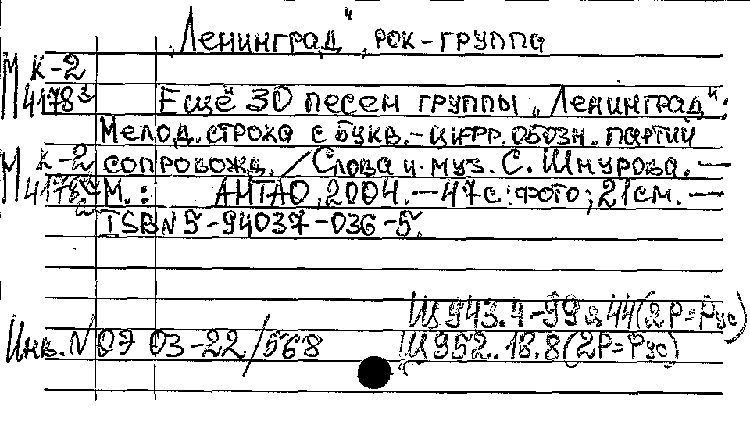 „Ленинград", рок-группа
М к-2
4178
Ещё 30 песен группы „Ленинград":
Мелод. строка с букв.-цифр. обозн. партий
М к-2 сопровожд. / Слова и муз. С. Шнурова. —
М.: АНТАО, 2004. — 47 с.: фото; 21 см. —
ISBN 5-94037-036-5.
Щ 943.4-99 я 44 (2Р=Рус)
Инв. N 09 03-22/568 Щ 952. 18. 8 (2Р=Рус)